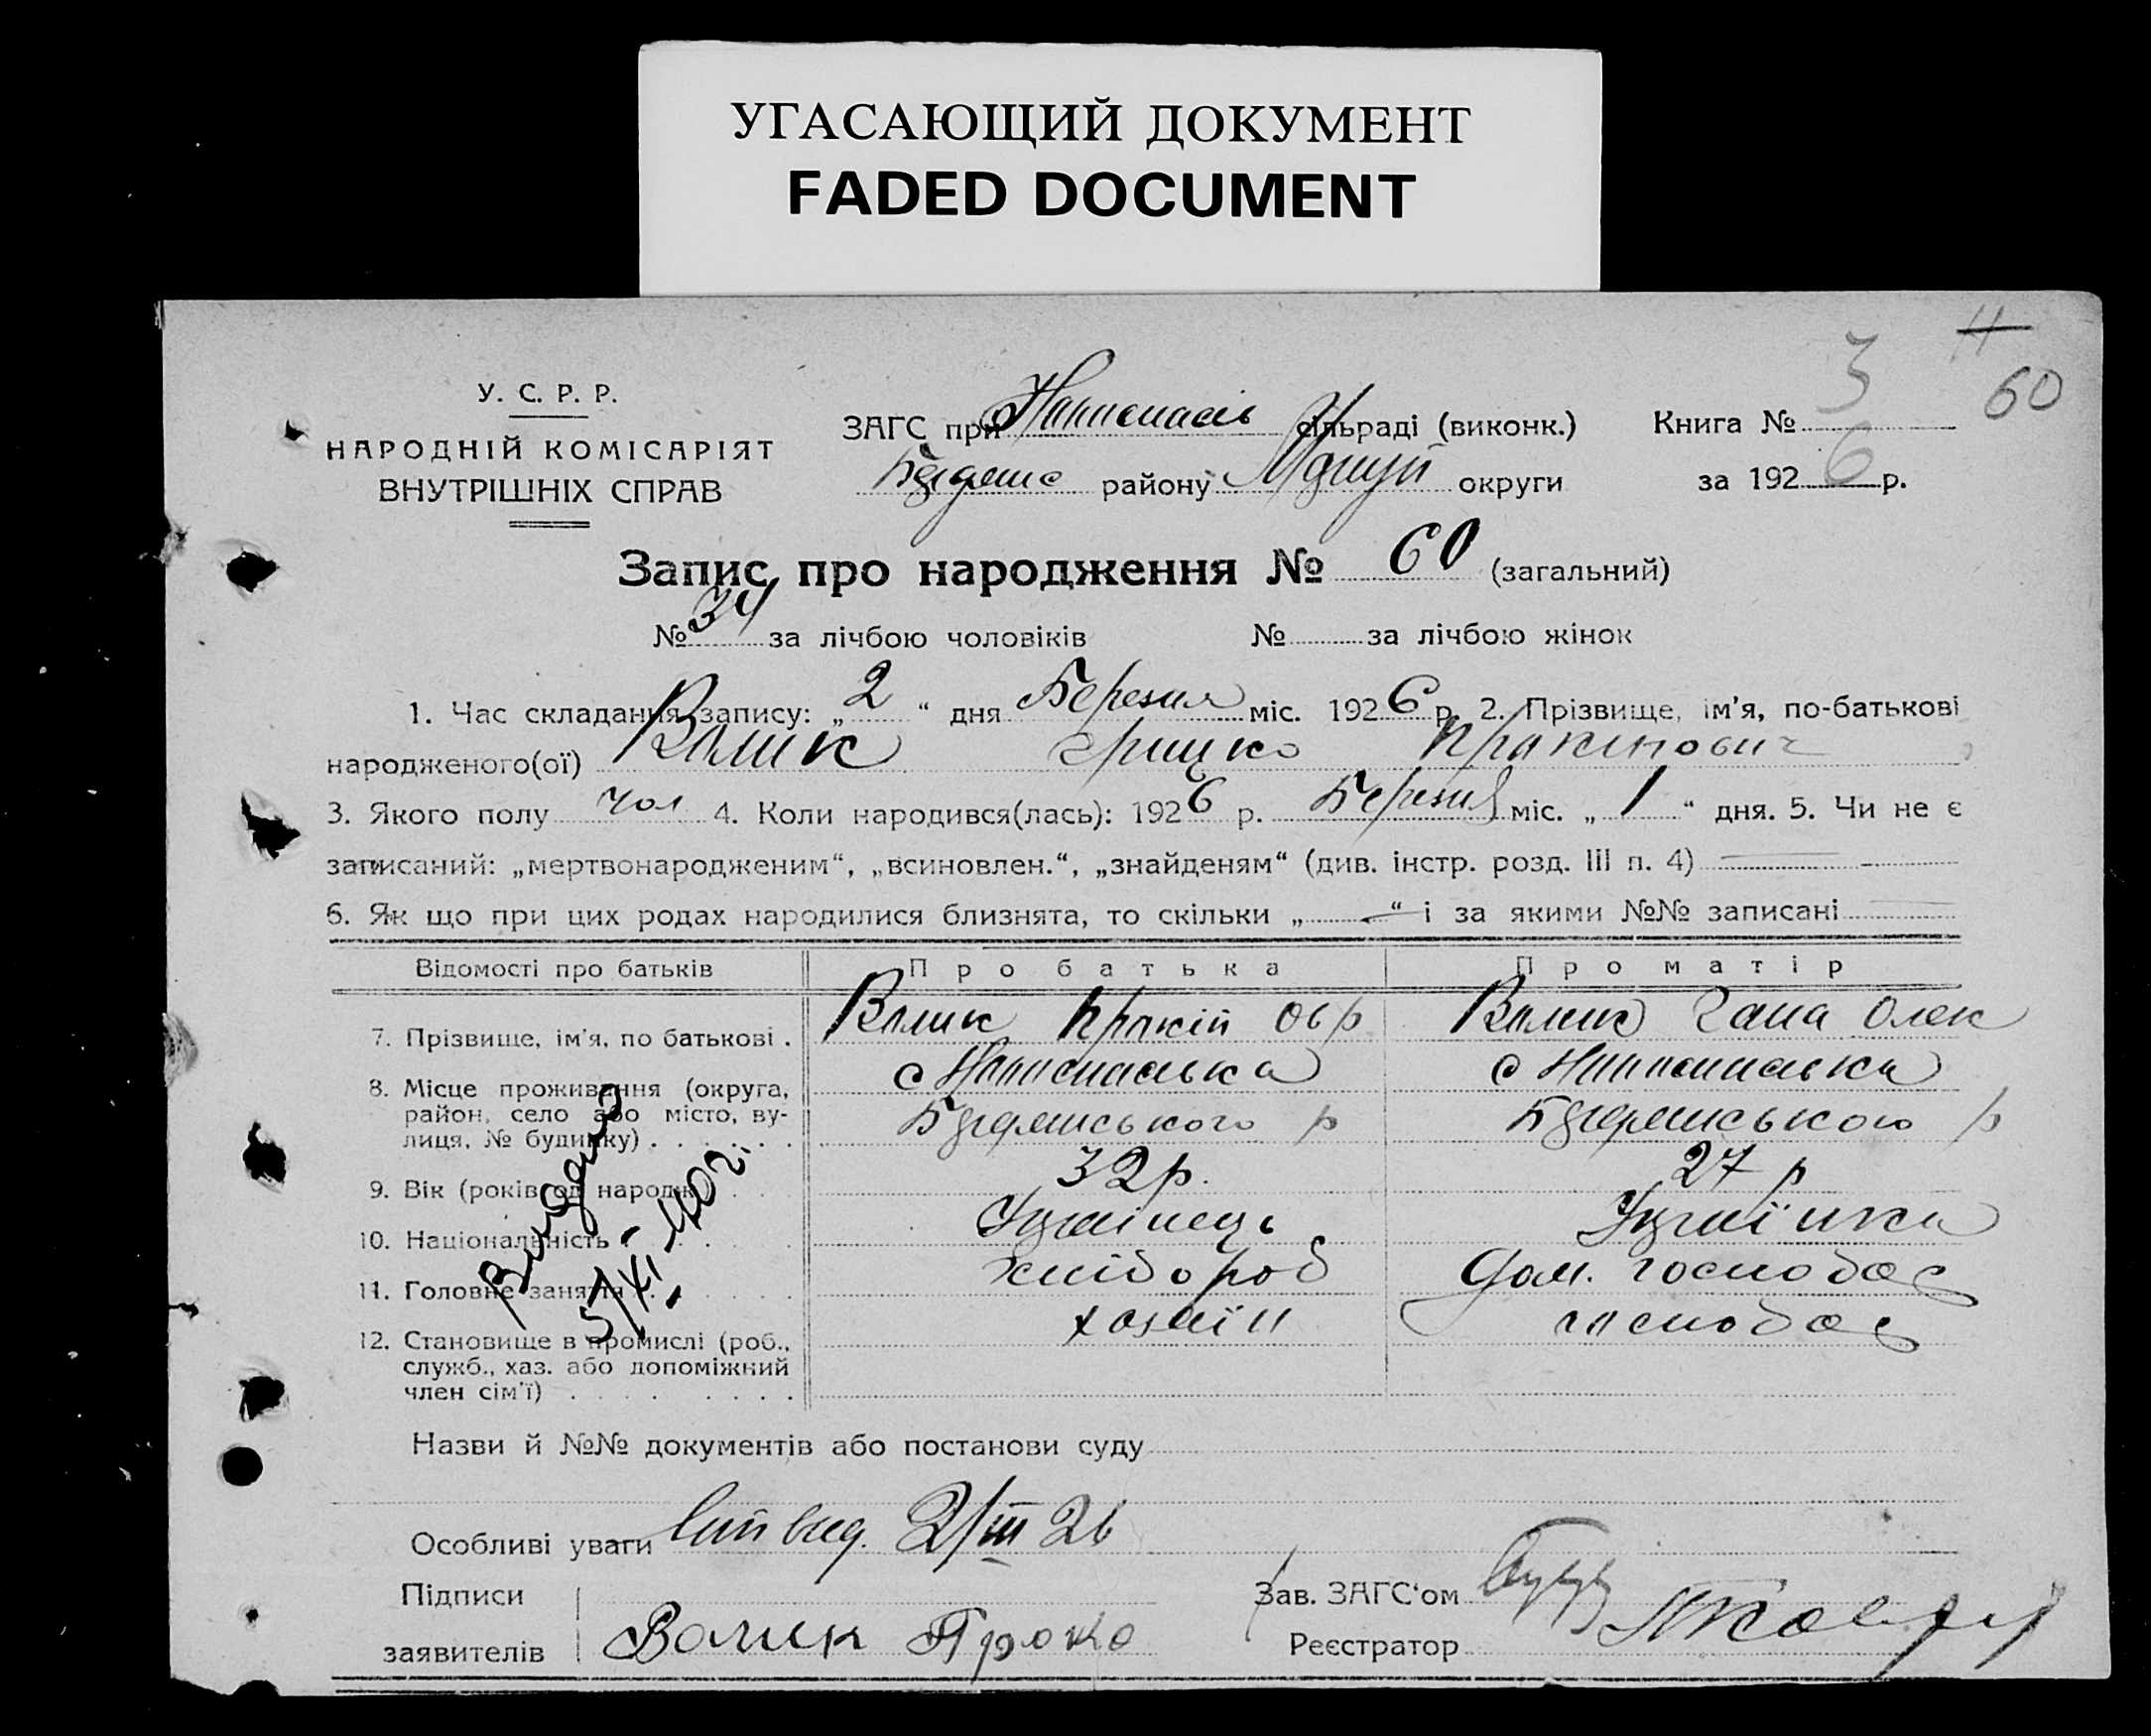 УГАСАЮЩИЙ ДОКУМЕНТ
FADED DOCUMENT
11
60
У. С. Р. Р.
НАРОДНІЙ КОМІСАРІЯТ
ВНУТРІШНІХ СПРАВ
ЗАГС при сільраді (виконк.) Книга № 3
району округи за 1926 р.
Запис про народження № 60 (загальний)
№ 34 за лічбою чоловіків № за лічбою жінок
1. Час складання запису: „2“ дня Березня міс. 1926 р. 2. Прізвище, ім'я, по-батькові
народженого(ої) Волик Грицко Пракпович
3. Якого полу чол 4. Коли народився(лась): 1926 р. Березня міс. „1“ дня. 5. Чи не є
записаний: „мертвонародженим“, „всиновлен.“, „знайденям“ (див. інстр. розд. III п. 4)
6. Як що при цих родах народилися близнята, то скільки „—“ і за якими №№ записані
Відомості про батьків Про батька Про матір
7. Прізвище, ім'я, по батькові . Волик Пракій Волик Гана Олек
8. Місце проживання (округа, район, село або місто, вулиця, № будинку)
9. Вік (років од народж.) 32 р. 27 р
10. Національність Украінець Украінка
11. Головне заняття хлібороб Дом. господар
12. Становище в промислі (роб., служб., хаз. або допоміжний член сім'ї) хозяїн господар
Видано
5/XI-40 г.
Назви й №№ документів або постанови суду
Особливі уваги 2/III 26
Підписи Зав. ЗАГС'ом
заявителів Волик Проко Реєстратор